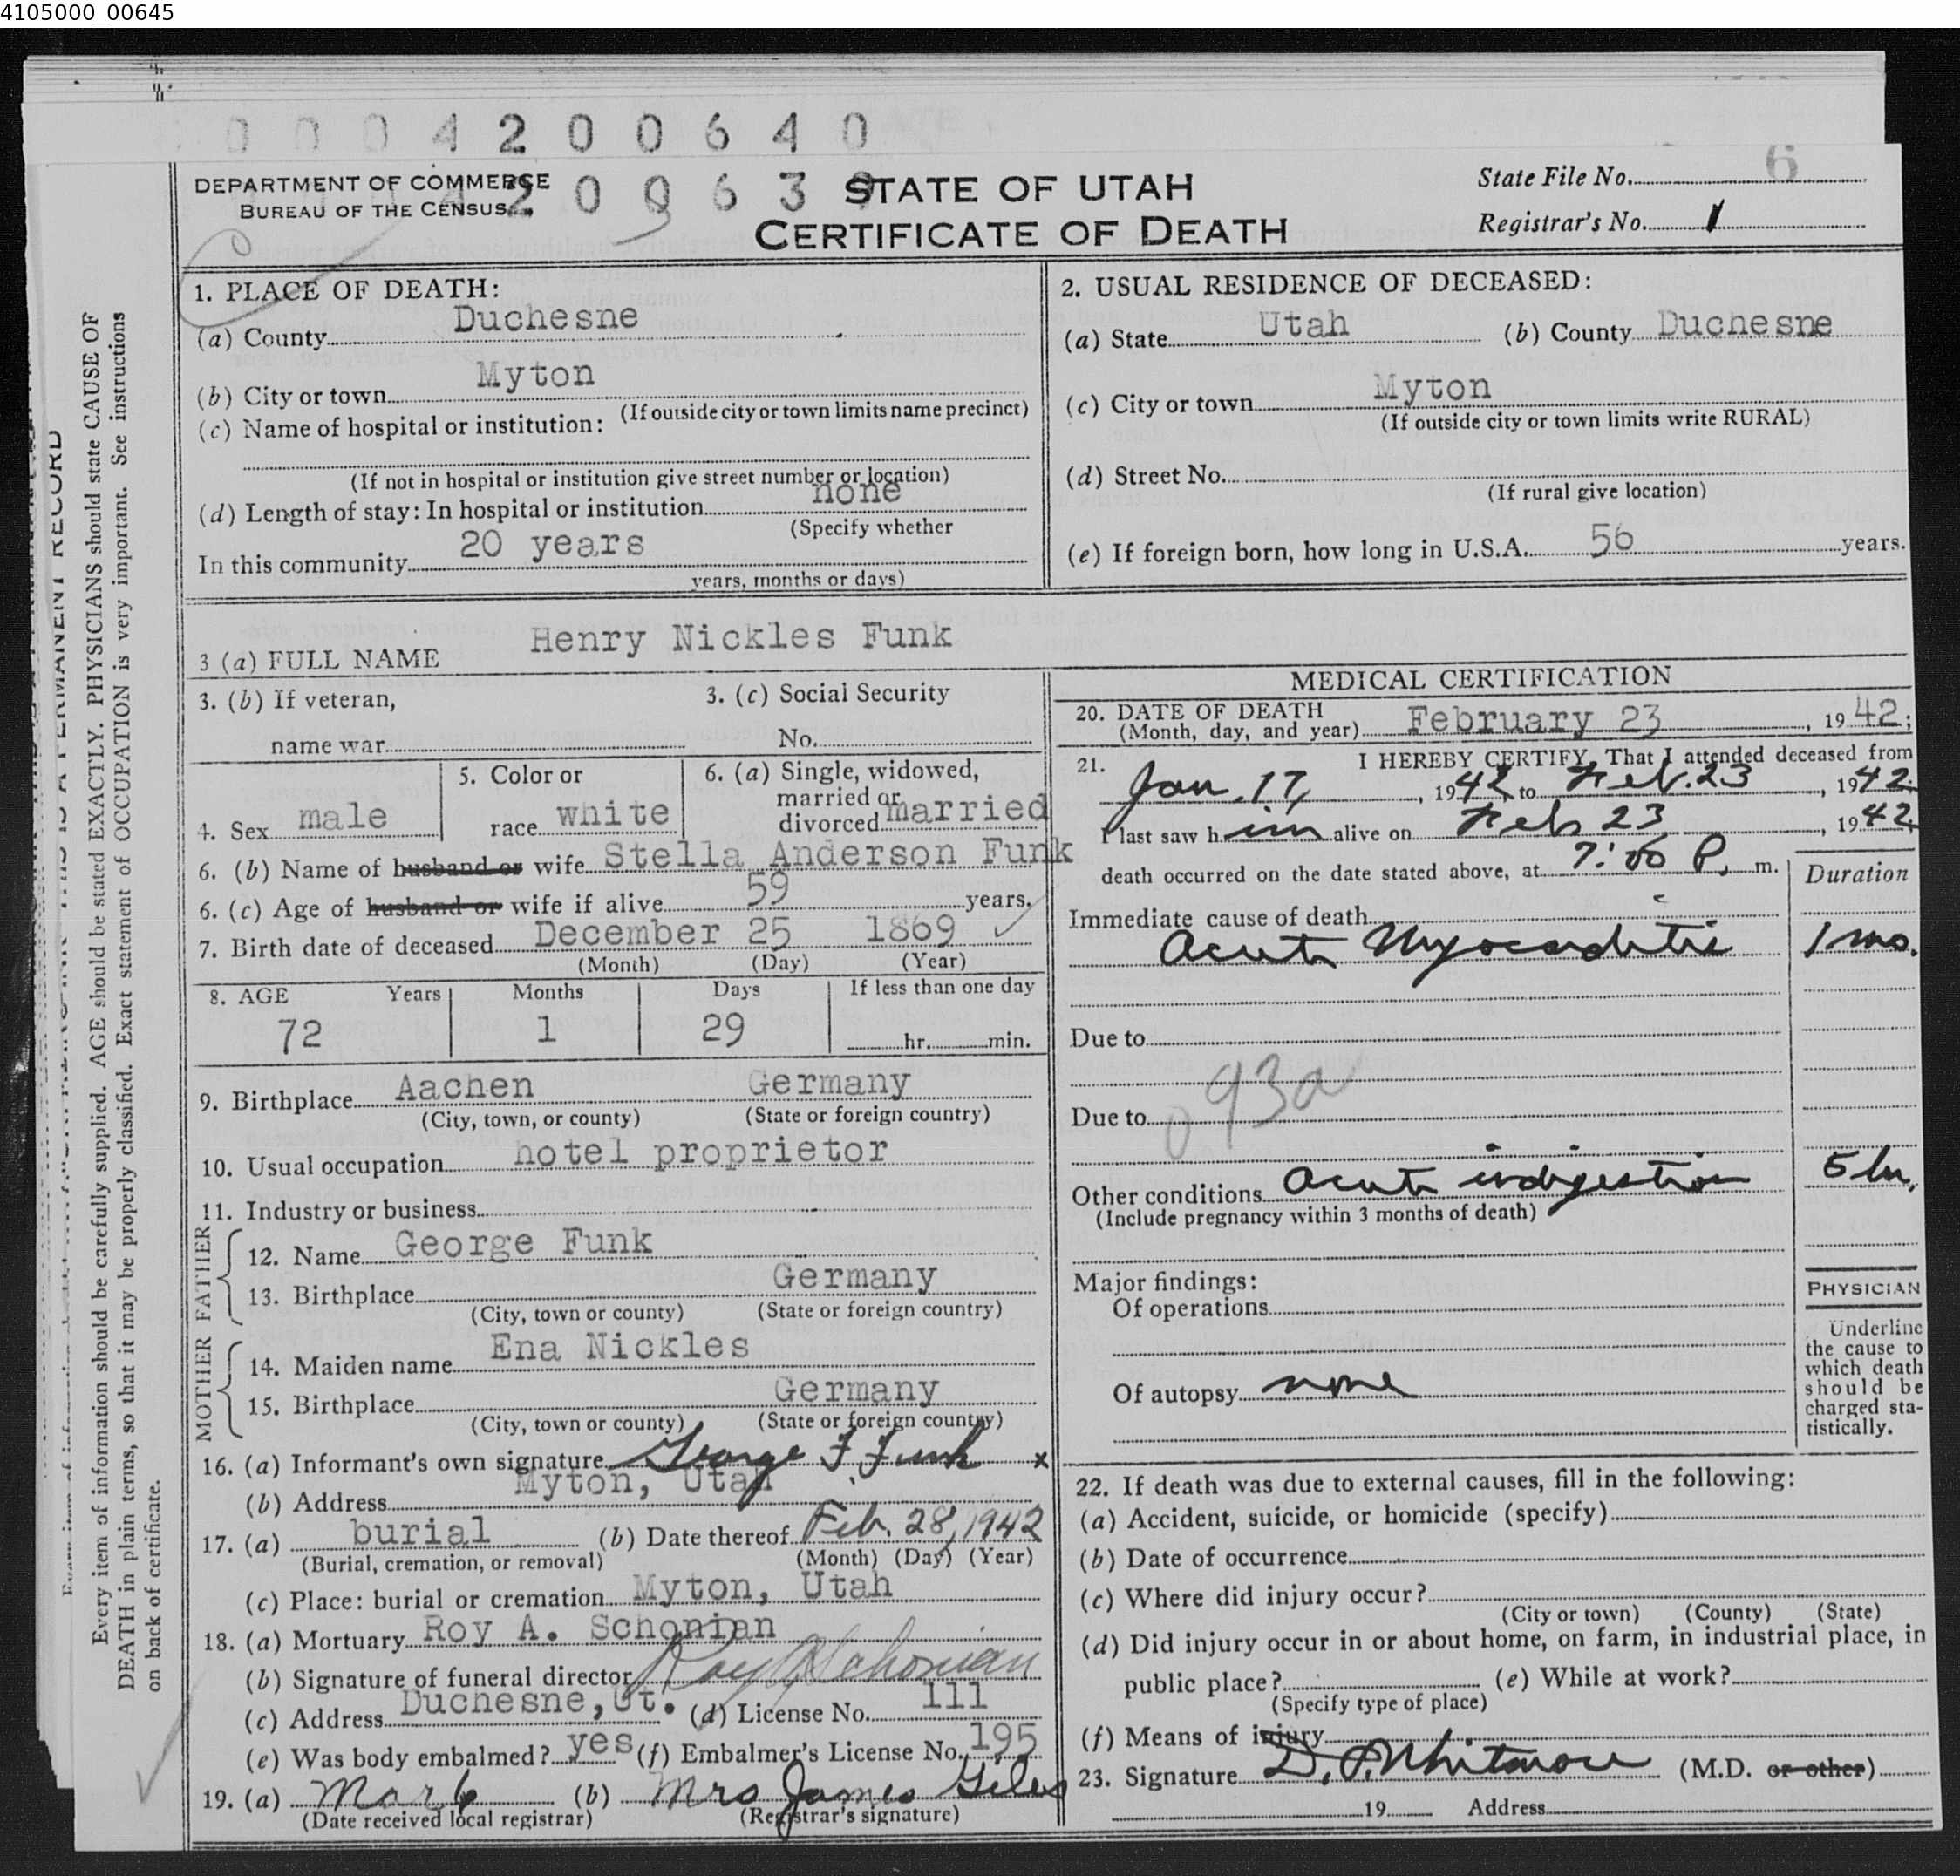 4105000_00645
0 0 0 4 2 0 0 6 4 0
DEPARTMENT OF COMMERCE
BUREAU OF THE CENSUS
STATE OF UTAH
CERTIFICATE OF DEATH
State File No. 6
Registrar's No. 1
1. PLACE OF DEATH:
(a) County Duchesne
(b) City or town Myton
(If outside city or town limits name precinct)
(c) Name of hospital or institution:
(If not in hospital or institution give street number or location)
(d) Length of stay: In hospital or institution none
(Specify whether
In this community 20 years
years, months or days)
2. USUAL RESIDENCE OF DECEASED:
(a) State Utah (b) County Duchesne
(c) City or town Myton
(If outside city or town limits write RURAL)
(d) Street No.
(If rural give location)
(e) If foreign born, how long in U.S.A. 56 years.
3 (a) FULL NAME Henry Nickles Funk
3. (b) If veteran,
name war
3. (c) Social Security
No.
4. Sex male
5. Color or
race white
6. (a) Single, widowed,
married or
divorced married
6. (b) Name of husband or wife Stella Anderson Funk
6. (c) Age of husband or wife if alive 59 years.
7. Birth date of deceased December 25 1869
(Month) (Day) (Year)
8. AGE Years Months Days If less than one day
72 1 29 hr. min.
9. Birthplace Aachen Germany
(City, town, or county) (State or foreign country)
10. Usual occupation hotel proprietor
11. Industry or business
FATHER
12. Name George Funk
13. Birthplace Germany
(City, town or county) (State or foreign country)
MOTHER
14. Maiden name Ena Nickles
15. Birthplace Germany
(City, town or county) (State or foreign country)
16. (a) Informant's own signature George F. Funk x
(b) Address Myton, Utah
17. (a) burial (b) Date thereof Feb. 28, 1942
(Burial, cremation, or removal) (Month) (Day) (Year)
(c) Place: burial or cremation Myton, Utah
18. (a) Mortuary Roy A. Schonian
(b) Signature of funeral director Roy A Schonian
(c) Address Duchesne, Ut. (d) License No. 111
(e) Was body embalmed? yes (f) Embalmer's License No. 195
19. (a) Mar 6 (b) Mrs James Giles
(Date received local registrar) (Registrar's signature)
MEDICAL CERTIFICATION
20. DATE OF DEATH
(Month, day, and year) February 23, 19 42;
21. I HEREBY CERTIFY, That I attended deceased from
Jan. 17, 1942, to Feb. 23, 1942.
I last saw h im alive on Feb 23, 1942,
death occurred on the date stated above, at 7:00 P. m.
Duration
Immediate cause of death
Acute Myocarditis 1 mo.
Due to
093a
Due to
Other conditions acute indigestion 5 hr.
(Include pregnancy within 3 months of death)
Major findings:
Of operations
Of autopsy none
PHYSICIAN
Underline
the cause to
which death
should be
charged sta-
tistically.
22. If death was due to external causes, fill in the following:
(a) Accident, suicide, or homicide (specify)
(b) Date of occurrence
(c) Where did injury occur?
(City or town) (County) (State)
(d) Did injury occur in or about home, on farm, in industrial place, in
public place? (e) While at work?
(Specify type of place)
(f) Means of injury
23. Signature D. P. Whitmore (M.D. or other)
19 Address
Every item of information should be carefully supplied. AGE should be stated EXACTLY. PHYSICIANS should state CAUSE OF
DEATH in plain terms, so that it may be properly classified. Exact statement of OCCUPATION is very important. See instructions
on back of certificate.